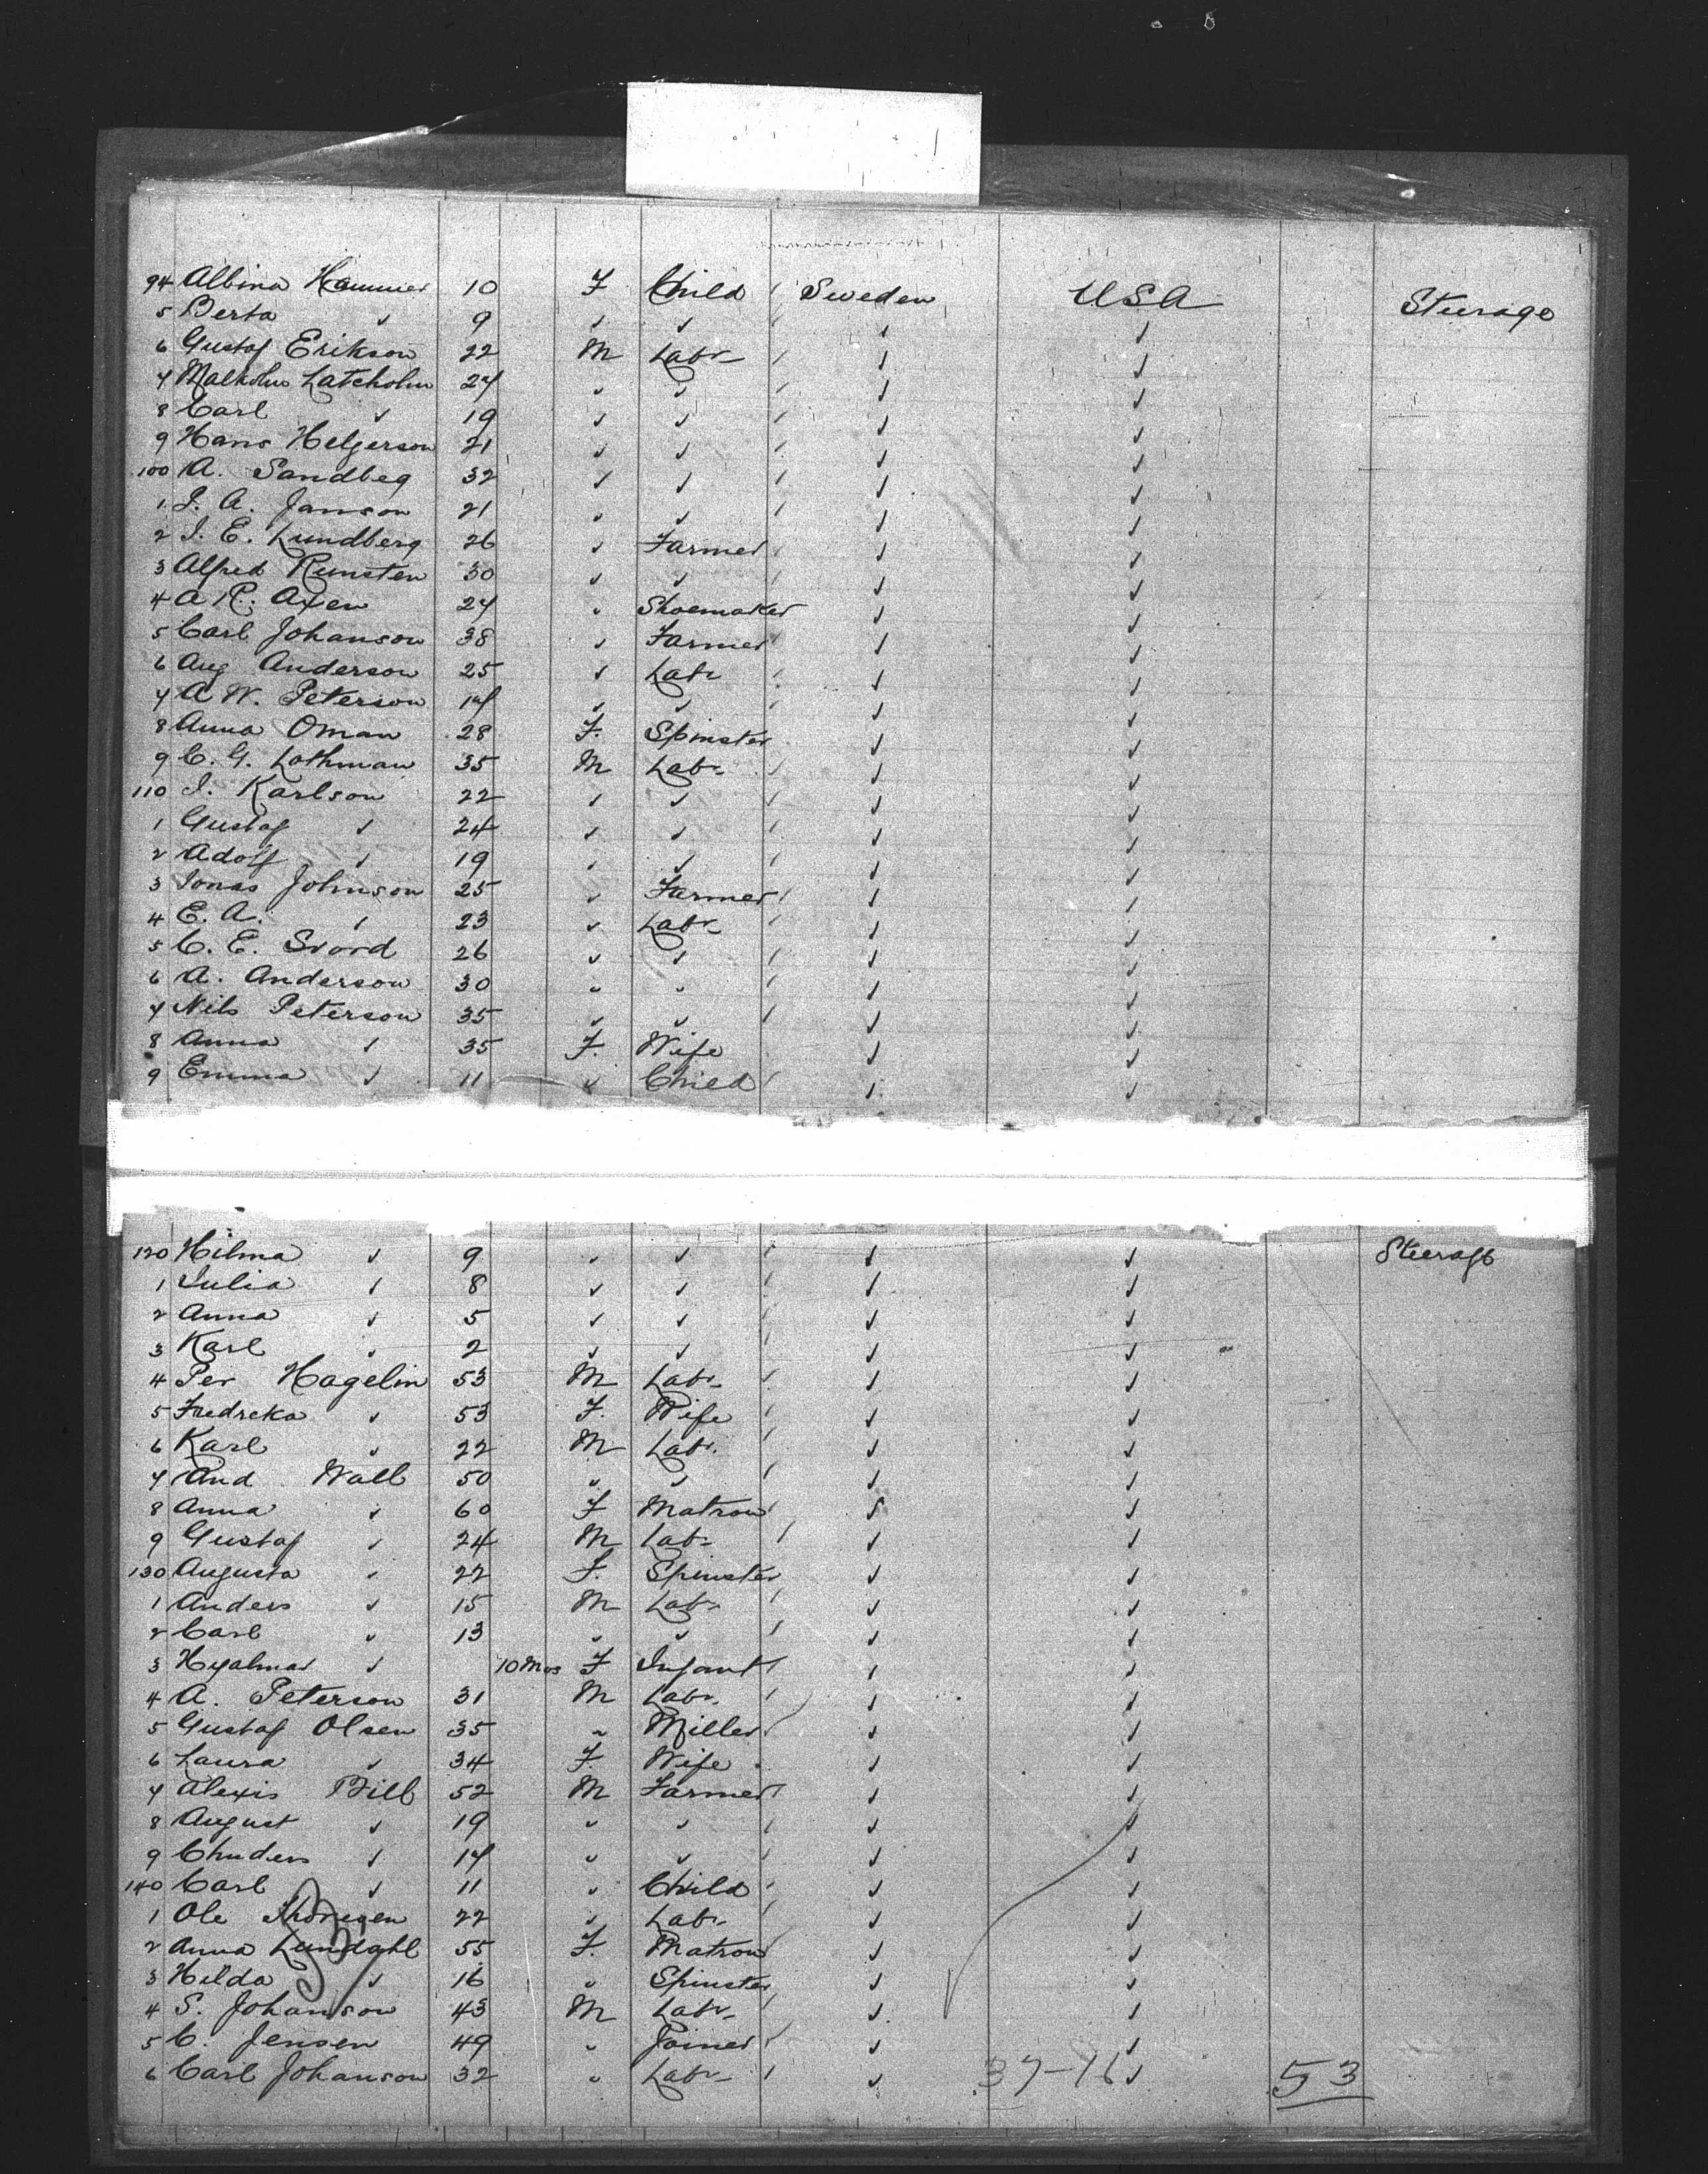 94 Albina Hammer 10 F Child Sweden USA Steerage
5 Berta " 9 " " " "
6 Gustaf Erikson 22 M Labr " "
7 Malkolm Latcholm 27 " " " "
8 Carl " 19 " " " "
9 Hans Helgerson 21 " " " "
100 A. Sandbeg 32 " " " "
1 J. A. Janson 21 " " " "
2 J. E. Lundberg 26 " Farmer " "
3 Alfred Runsten 30 " " " "
4 A R. Axen 27 " Shoemaker " "
5 Carl Johanson 38 " Farmer " "
6 Aug Anderson 25 " Labr " "
7 A W. Peterson 17 " " " "
8 Anna Oman 28 F. Spinster " "
9 C. G. Lothman 35 M Labr " "
110 J. Karlson 22 " " " "
1 Gustaf " 24 " " " "
2 Adolf " 19 " " " "
3 Jonas Johnson 25 " Farmer " "
4 E. A. " 23 " Labr " "
5 C. E. Svord 26 " " " "
6 A. Anderson 30 " " " "
7 Nils Peterson 35 " " " "
8 Anna " 35 F. Wife " "
9 Emma " 11 " Child " "
120 Hilma " 9 " " " " Steerage
1 Julia " 8 " " " "
2 Anna " 5 " " " "
3 Karl " 2 " " " "
4 Per Hagelin 53 M Labr " "
5 Fredreka " 53 F. Wife " "
6 Karl " 22 M Labr. " "
7 And Wall 50 " " " "
8 Anna " 60 F Matron " "
9 Gustaf " 24 M Labr " "
130 Augusta " 22 F. Spinster " "
1 Anders " 15 M Labr " "
2 Carl " 13 " " " "
3 Hyalmar " 10 Mos F Infant " "
4 A. Peterson 31 M Labr. " "
5 Gustaf Olsen 35 " Miller " "
6 Laura " 34 F. Wife " "
7 Alexis Bill 52 M Farmer " "
8 August " 19 " " " "
9 Chuders " 17 " " " "
140 Carl " 11 " Child " "
1 Ole Thoresen 22 " Labr " "
2 Anna Lundahl 55 F. Matron " "
3 Hilda " 16 " Spinster " "
4 S. Johanson 43 M Labr " "
5 C. Jensen 49 " Joiner " "
6 Carl Johanson 32 " Labr " 37-16 " 53